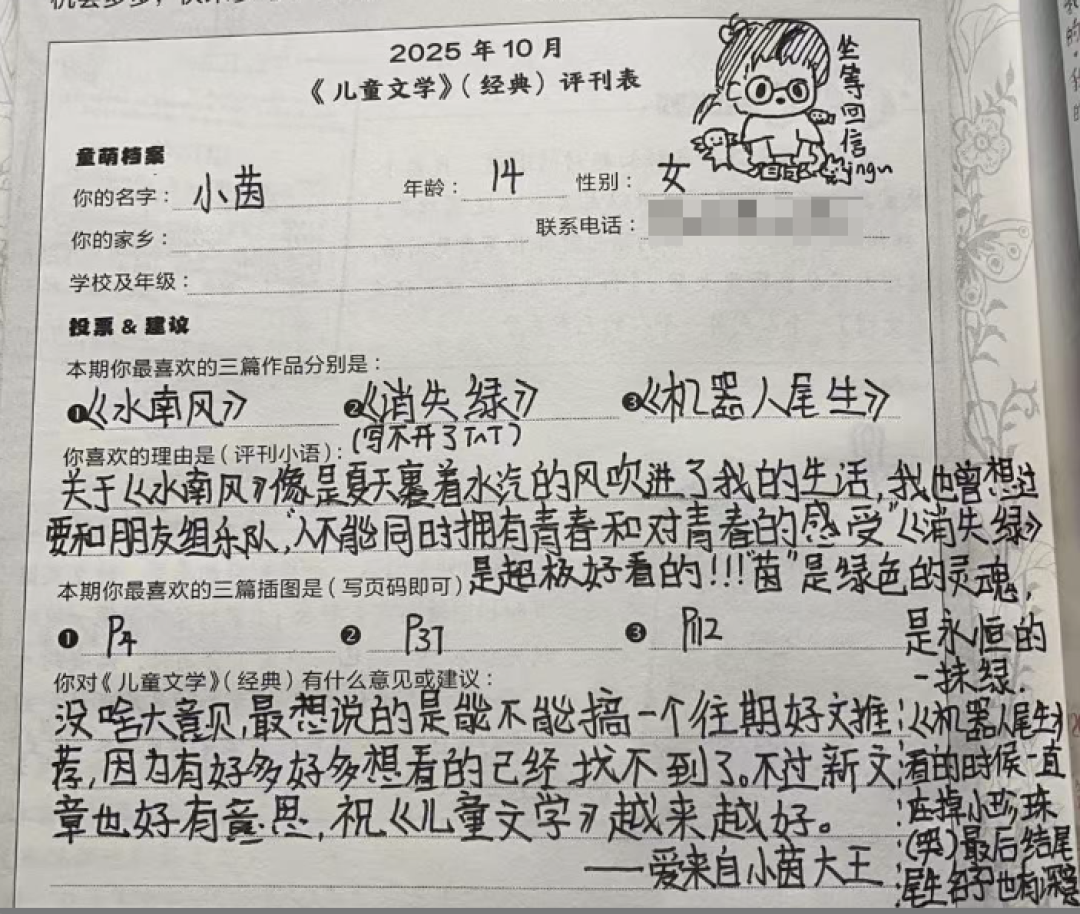 2025年10月
《儿童文学》（经典）评刊表
坐等回信
jingu
童萌档案
你的名字：小茵 年龄：14 性别：女
你的家乡： 联系电话：
学校及年级：
投票 & 建议
本期你最喜欢的三篇作品分别是：
❶《水南风》 ❷《消失绿》 ❸《机器人尾生》
你喜欢的理由是（评刊小语）：(写不开了T^T)
关于《水南风》像是夏天裹着水汽的风吹进了我的生活，我也曾想过
要和朋友组乐队，“人不能同时拥有青春和对青春的感受”《消失绿》
是超极好看的!!!“茵”是绿色的灵魂，
是永恒的
一抹绿.
本期你最喜欢的三篇插图是（写页码即可）
❶ P4 ❷ P37 ❸ P112
你对《儿童文学》（经典）有什么意见或建议：
没啥大意见，最想说的是能不能搞一个往期好文推
荐，因为有好多好多想看的已经找不到了。不过新文
章也好有意思，祝《儿童文学》越来越好。
——爱来自小茵大王
《机器人尾生》
看的时候一直
在掉小珍珠
(哭)最后结尾
尾生名字也有深意